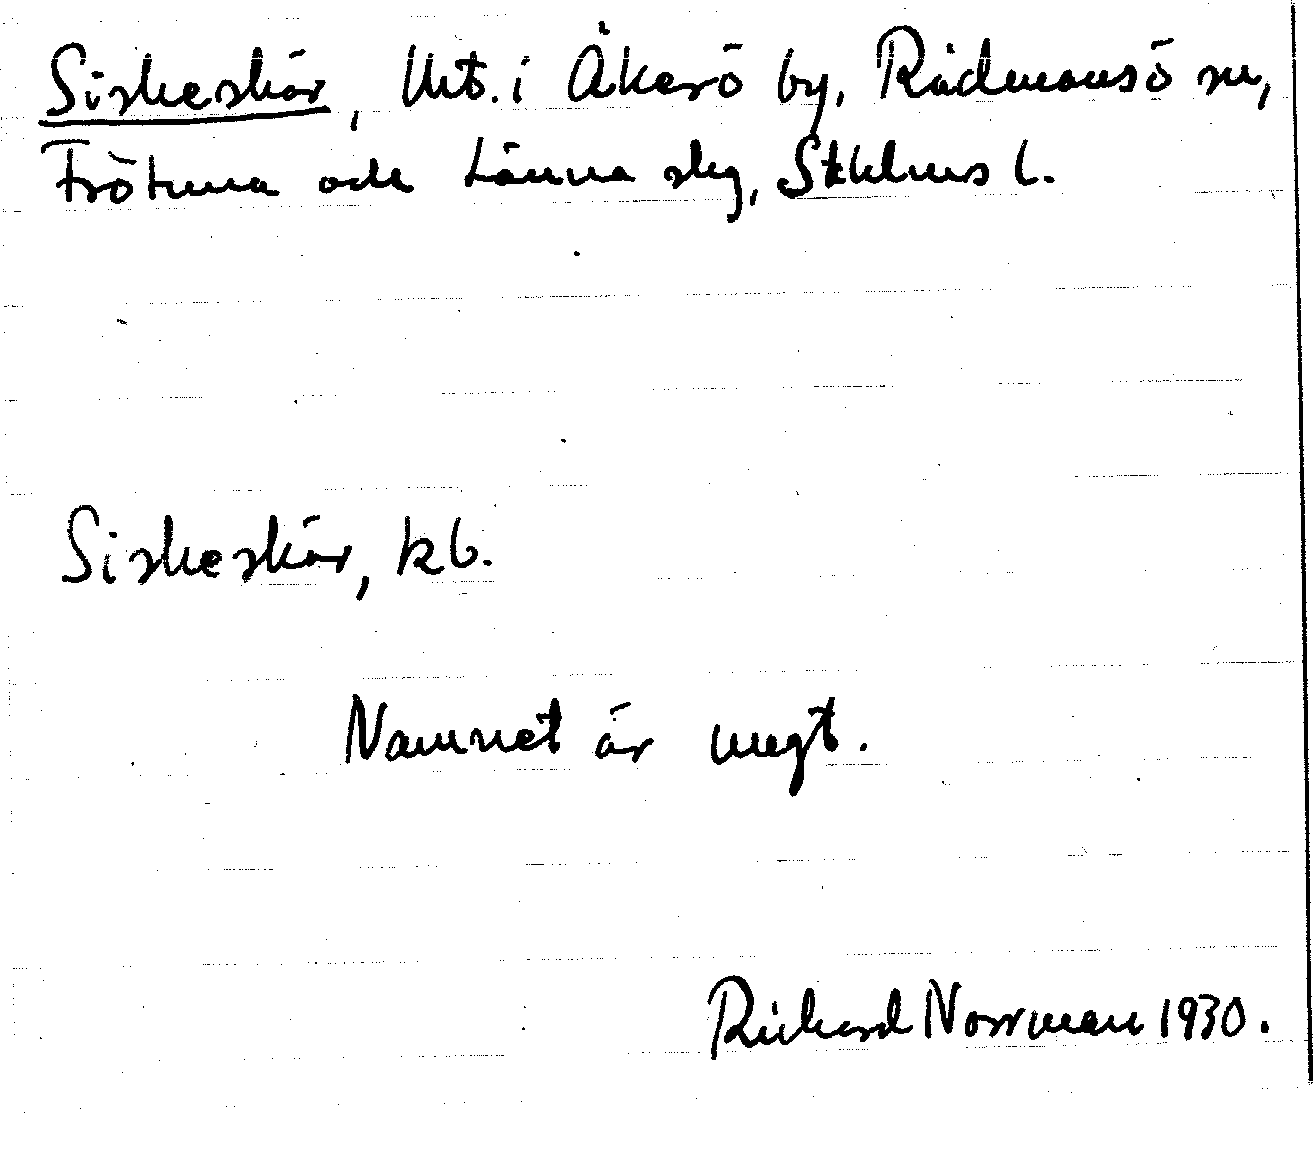 Siskeskär, Urt. i Åkerö by, Rådmansö sn,
Frötuna och Länna slg, Stkhms l.
Siskeskär, kb.
Namnet är ungt.
Richard Norrman 1930.